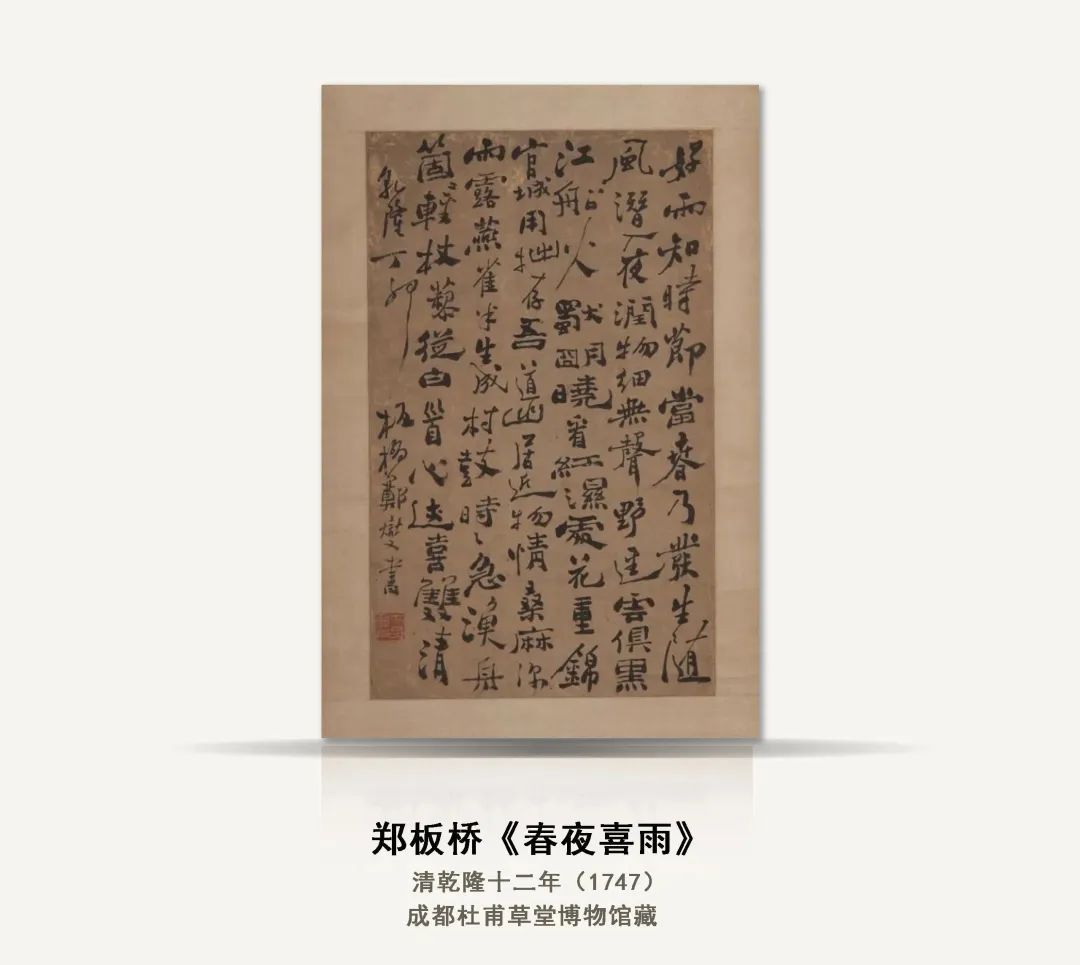 好雨知時節當春乃發生随
風潛入夜潤物細無聲野逕雲俱黑
江船火獨明曉看紅濕處花重錦
官城用拙存吾道幽居近物情桑麻深
雨露燕雀半生成村鼓時〻急漁舟
箇〻輕杖藜從白首心迹喜雙清
乾隆丁卯 板橋鄭燮書
郑板桥《春夜喜雨》
清乾隆十二年（1747）
成都杜甫草堂博物馆藏